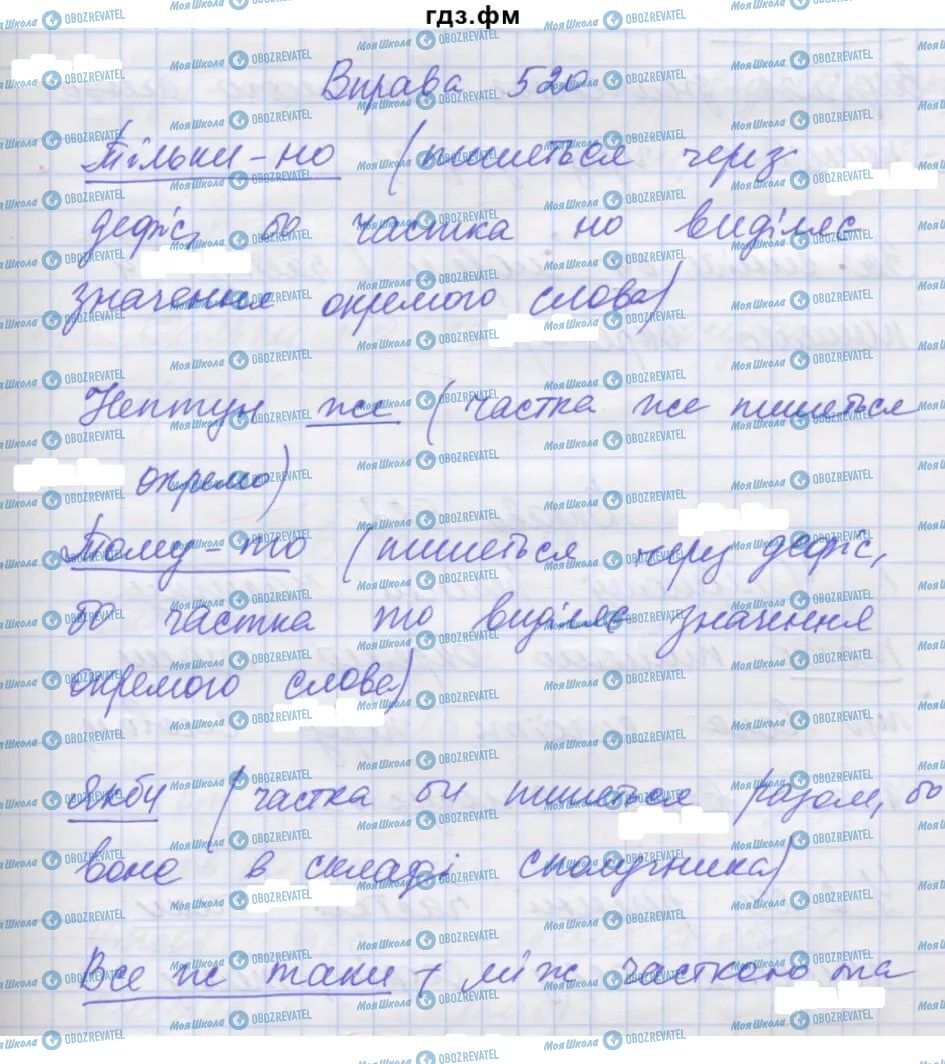 гдз.фм
Вправа 520
Тільки-но (пишеться через
дефіс, бо частка но виділяє
значення окремого слова)
Нептун же (частка же пишеться
окремо)
Тому-то (пишеться через дефіс,
бо частка то виділяє значення
окремого слова)
Якби (частка би пишеться разом, бо
вона в складі сполучника)
Все ж таки + між часткою та